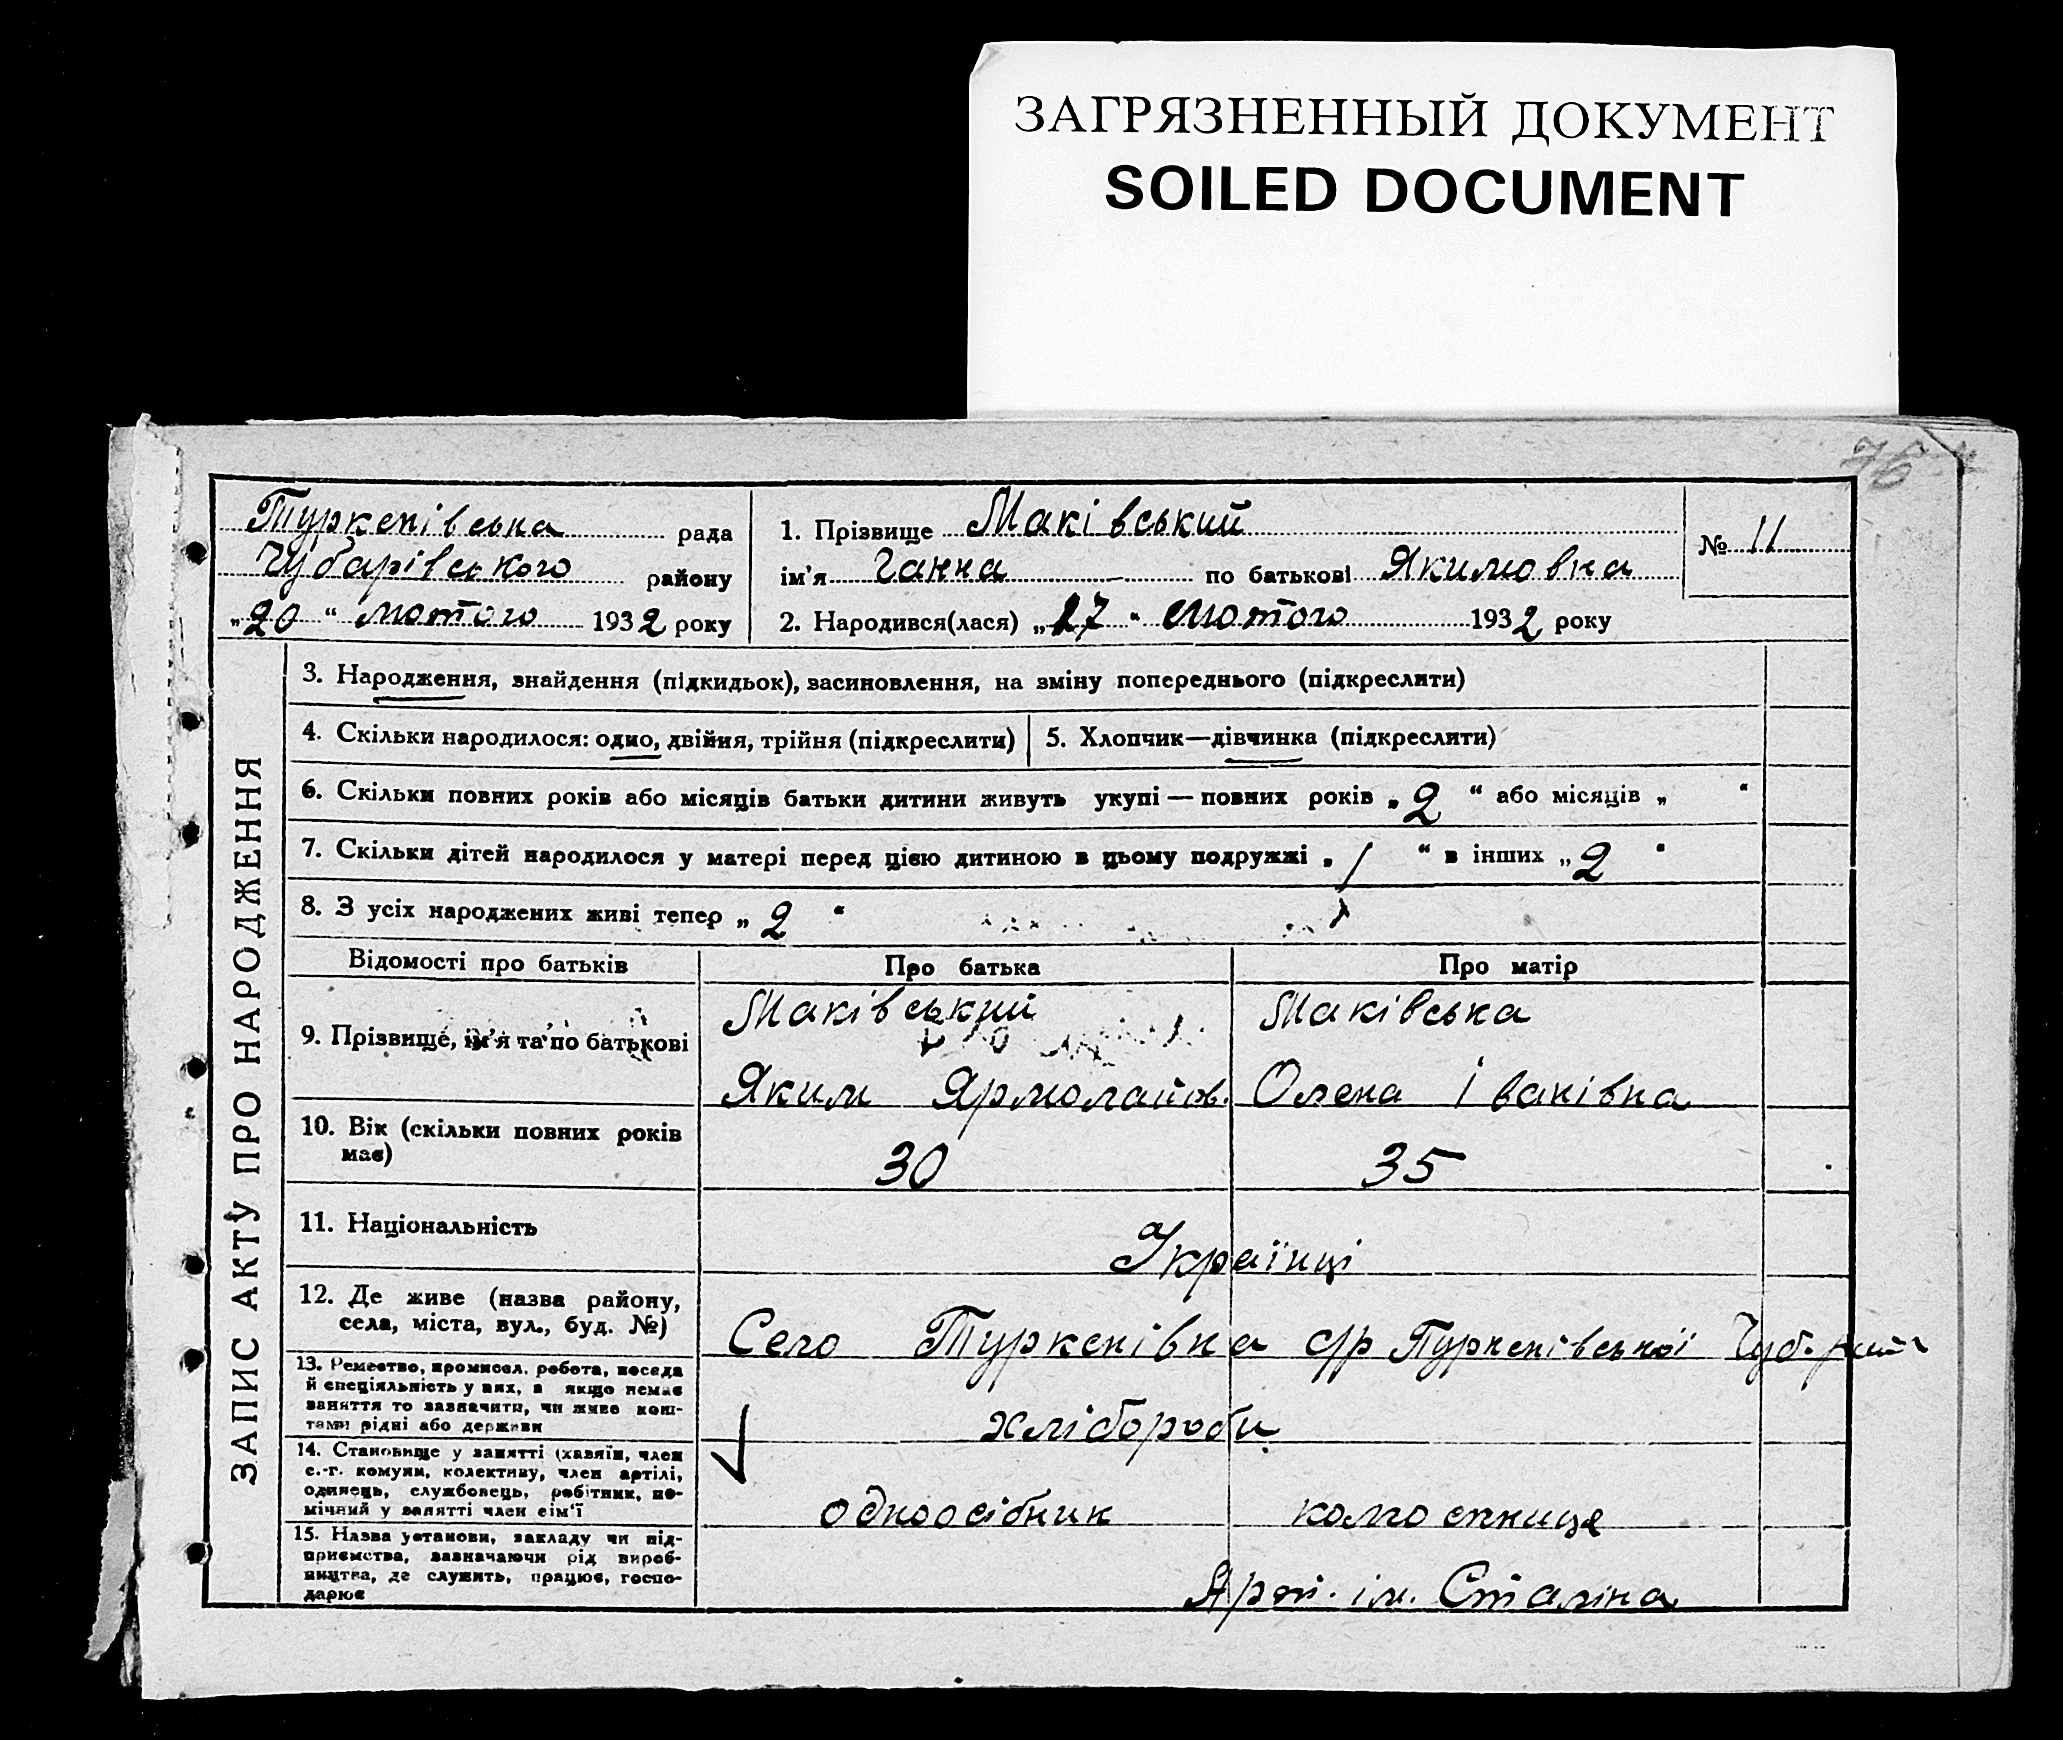 ЗАГРЯЗНЕННЫЙ ДОКУМЕНТ
SOILED DOCUMENT
76
Туркенівська рада
Чубарівського району
„20“ лютого 1932 року
1. Прізвище Маківський
ім'я Ганна по батькові Якимовна
2. Народився(лася) „17“ лютого 1932 року
№ 11
ЗАПИС АКТУ ПРО НАРОДЖЕННЯ
3. Народження, знайдення (підкидьок), засиновлення, на зміну попереднього (підкреслити)
4. Скільки народилося: одно, двійня, трійня (підкреслити)
5. Хлопчик—дівчинка (підкреслити)
6. Скільки повних років або місяців батьки дитини живуть укупі — повних років „2“ або місяців „ “
7. Скільки дітей народилося у матері перед цією дитиною в цьому подружжі „1“ в інших „2“
8. З усіх народжених живі тепер „2“
Відомості про батьків Про батька Про матір
9. Прізвище, ім'я та по батькові
Маківський
Яким Ярмолайов.
Маківська
Олена Іванівна
10. Вік (скільки повних років
має)
30 35
11. Національність
Українці
12. Де живе (назва району,
села, міста, вул., буд. №)
Село Туркенівка с/р Туркенівської Чуб.
13. Ремество, промисел, робота, посада
й спеціяльність у них, а якщо немає
заняття то зазначити, чи живе кош-
тами рідні або держави
хлібороби
14. Становище у занятті (хазяїн, член
с.-г. комуни, колективу, член артілі,
одинець, службовець, робітник, по-
мічний у занятті член сім'ї
одноосібник колгоспниця
15. Назва установи, закладу чи під-
приємства, зазначаючи рід вироб-
ництва, де служить, працює, госпо-
дарює
Арт. ім. Сталіна